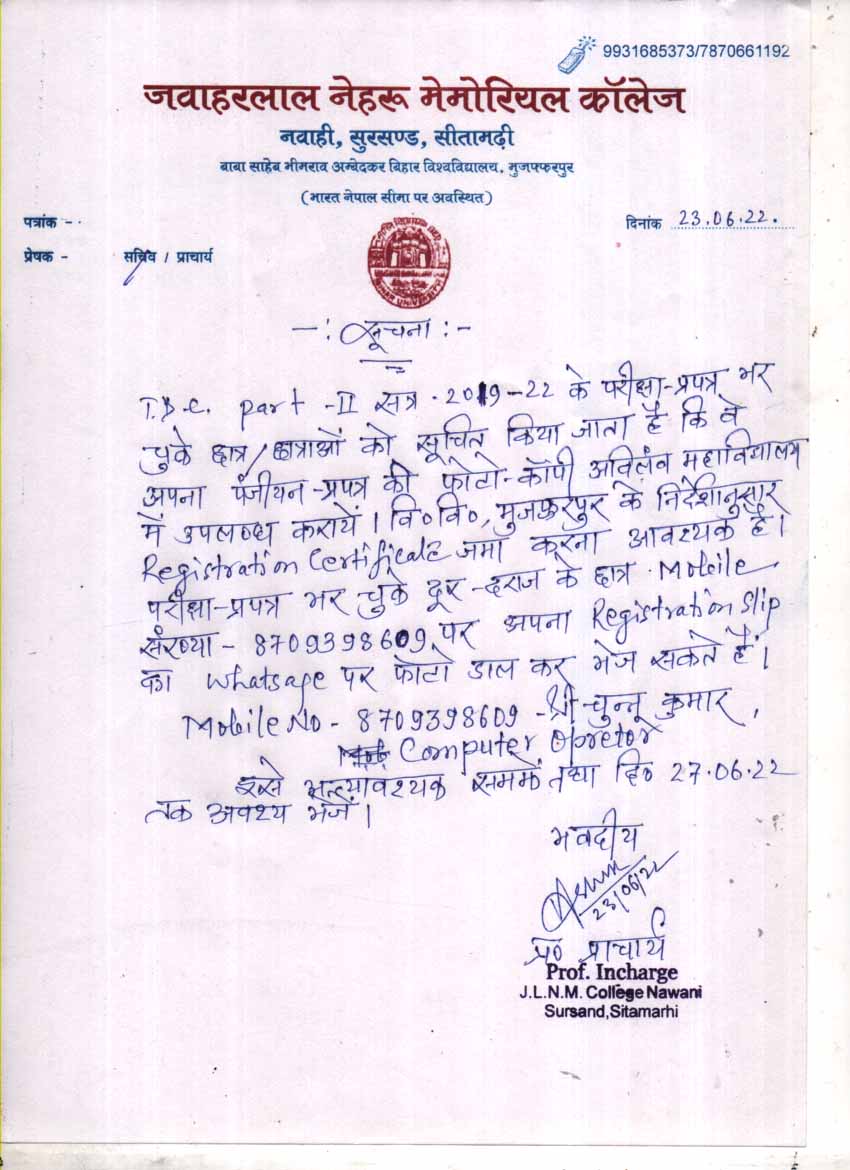 9931685373/7870661192
जवाहरलाल नेहरू मेमोरियल कॉलेज
नवाही, सुरसण्ड, सीतामढ़ी
बाबा साहेब भीमराव अम्बेदकर बिहार विश्वविद्यालय, मुजफ्फरपुर
(भारत नेपाल सीमा पर अवस्थित)
पत्रांक - दिनांक 23.06.22.
प्रेषक - सचिव / प्राचार्य
-: सूचना :-
T.D.C. part -II सत्र - 2019-22 के परीक्षा-प्रपत्र भर
चुके छात्र/छात्राओं को सूचित किया जाता है कि वे
अपना पंजीयन-प्रपत्र की फोटो-कॉपी अविलंव महाविद्यालय
में उपलब्ध करायें। वि० वि०, मुजफ्फरपुर के निर्देशानुसार
Registration Certificate जमा करना आवश्यक है।
परीक्षा-प्रपत्र भर चुके दूर-दराज के छात्र Mobile
संख्या - 8709398609 पर अपना Registration Slip
का Whatsape पर फोटो डाल कर भेज सकते हैं।
Mobile No - 8709398609 - श्री चुन्नू कुमार,
Computer Opretor
इसे अत्यावश्यक समझें तथा दि० 27.06.22
तक अवश्य भेजें।
भवदीय
23/06/22
प्र० प्राचार्य
Prof. Incharge
J.L.N.M. College Nawani
Sursand,Sitamarhi